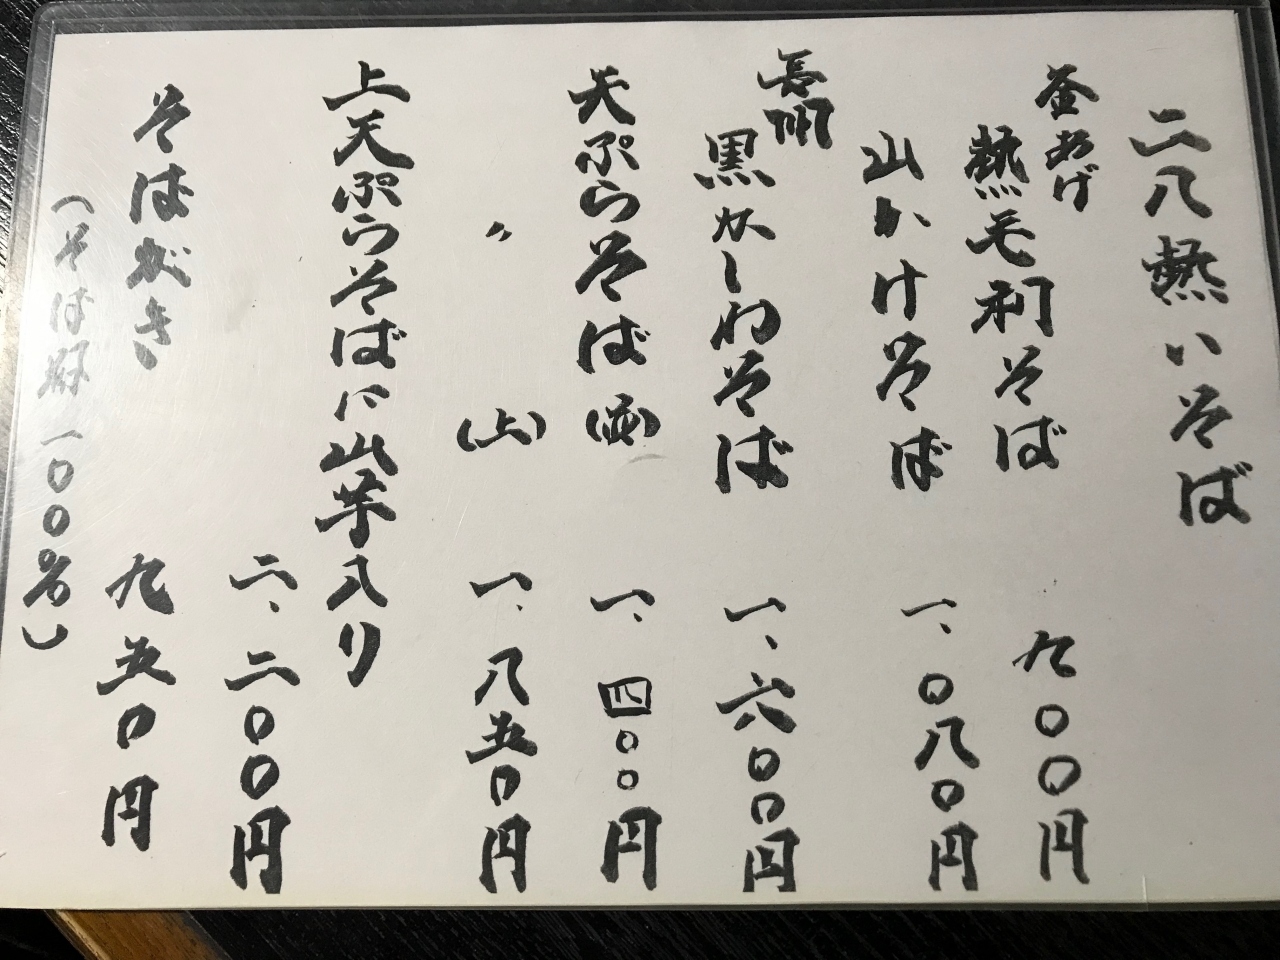 二八熱いそば
釜あげ
熱毛利そば 九〇〇円
山かけそば 一、〇八〇円
長州
黒かしわそば 一、六〇〇円
天ぷらそば(並) 一、四〇〇円
〃 (上) 一、八五〇円
上天ぷらそばに山芋入り
二、二〇〇円
そばがき 九五〇円
(そば粉一〇〇%)